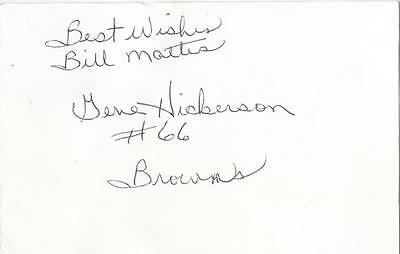 Best Wishes
Bill Mattes
Gene Hickerson
#66
Browns